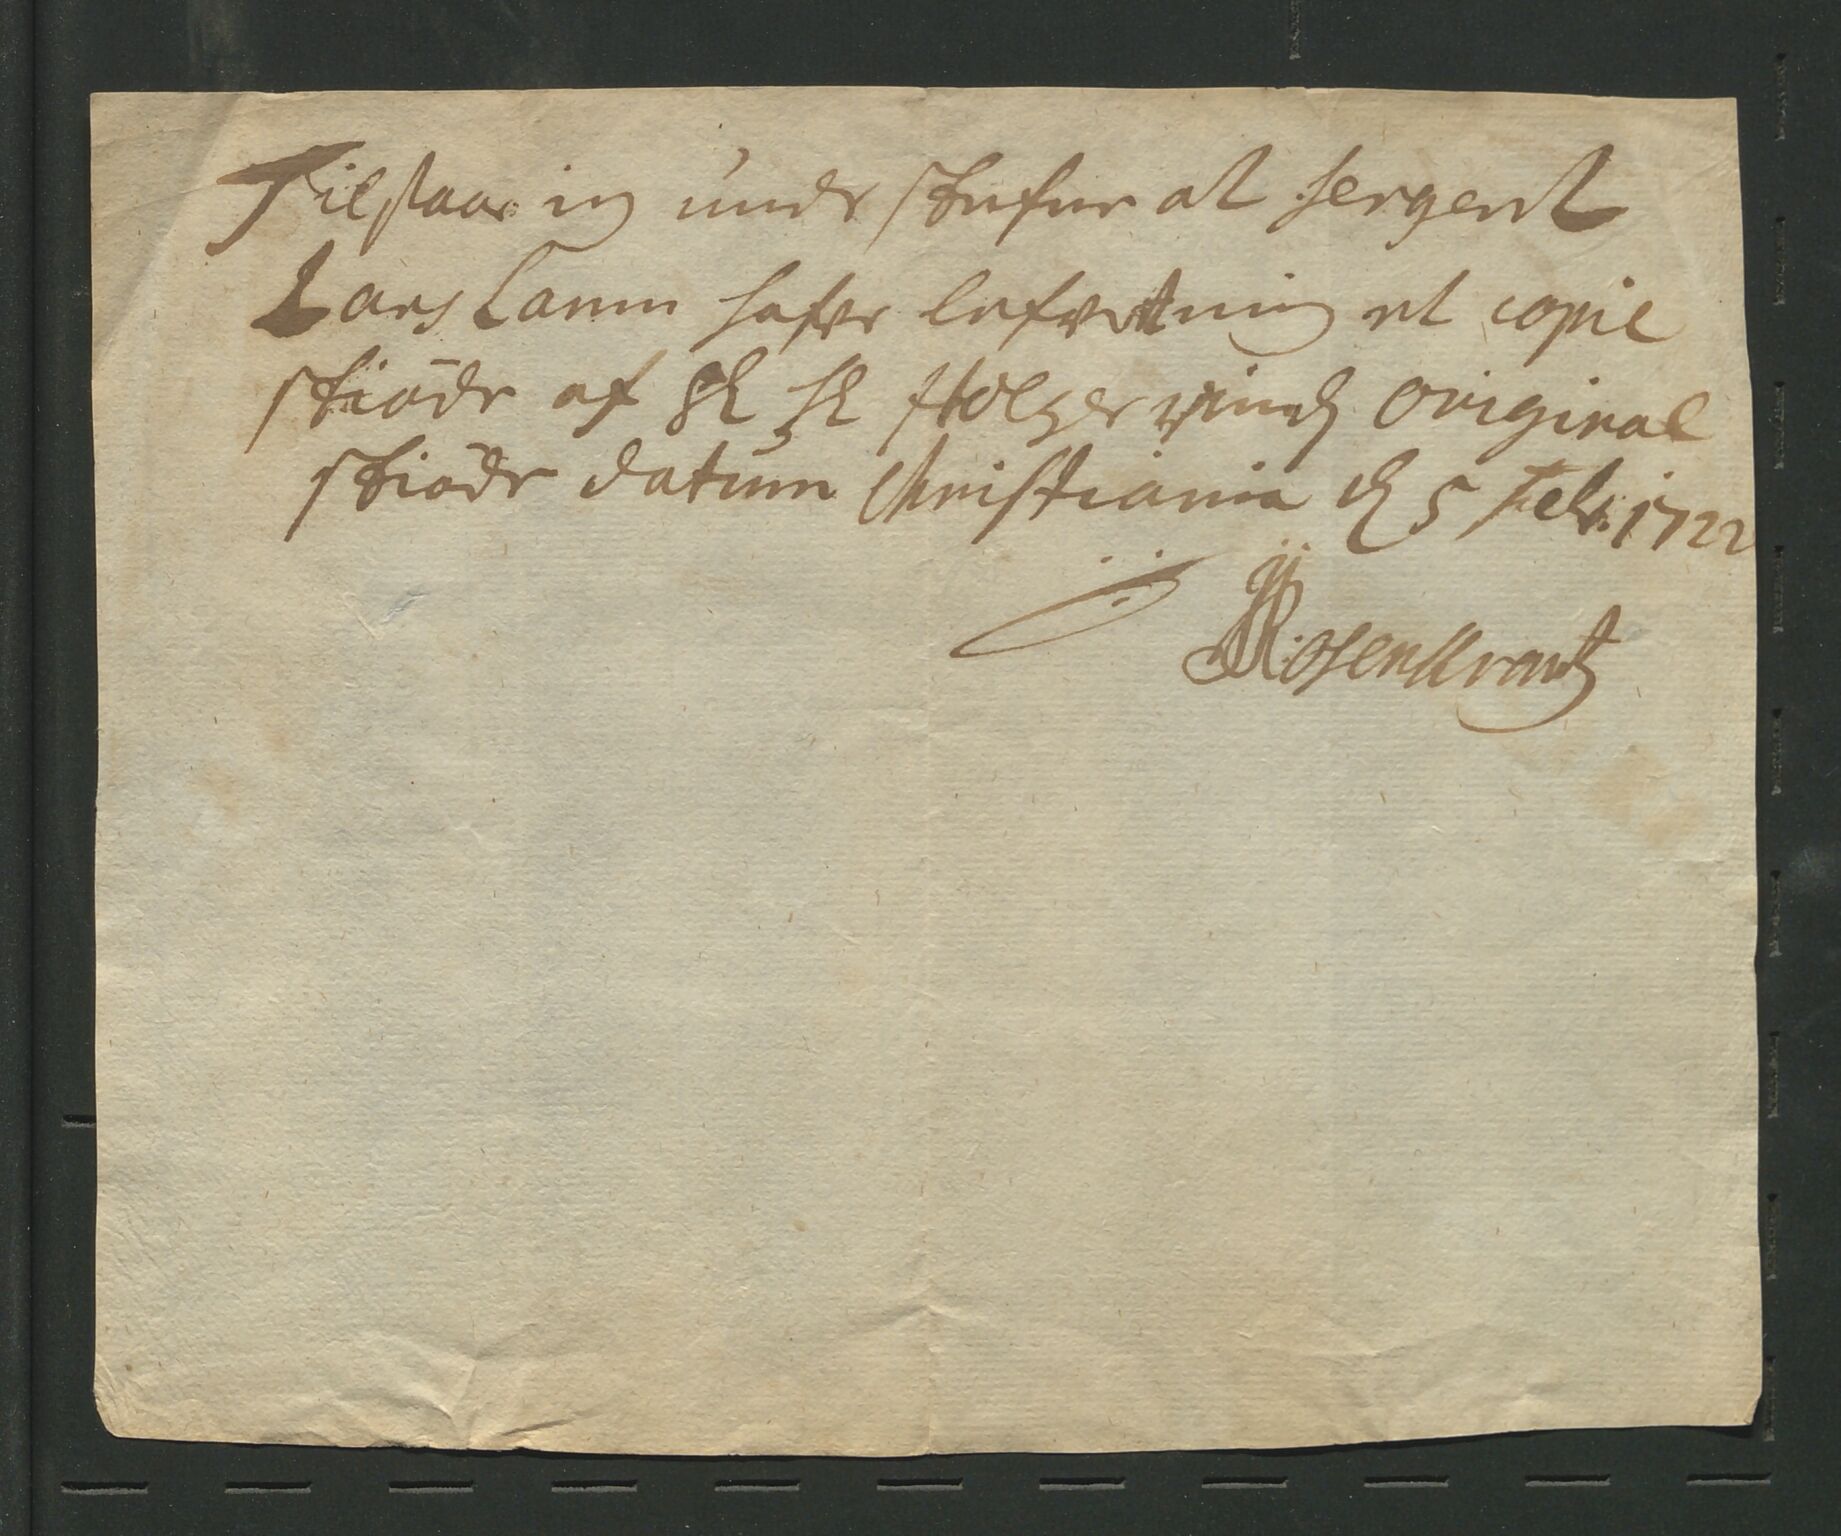 Tilstaar ieg under skrefne at sergent
Lars Lamm hafver lefvert mig et copie
skiöde af Holger vind original
skiöde datum Christiania d 5 Feb: 1722
Rosenkrantz